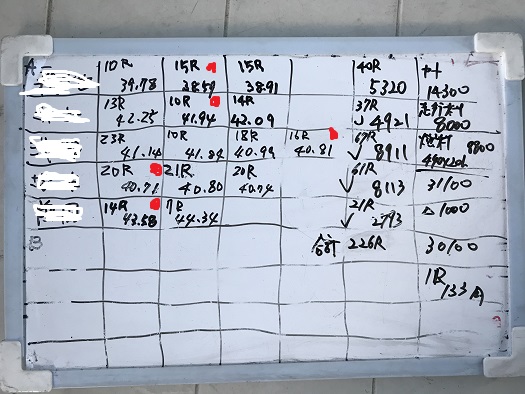 A
10R 15R 15R 40R
39.78 38.59 38.91 5320 14300
13R 10R 14R 37R 走行料
42.25 41.94 42.09 4921 8000
23R 10R 18R 16R 67R 燃料 8800
41.14 41.84 40.99 40.81 8911 490×20l
20R 21R 20R 61R
40.71 40.80 40.74 8113 31100
14R 7R 21R △1000
43.58 44.34 2793
B 合計 226R 30100
1R
133円